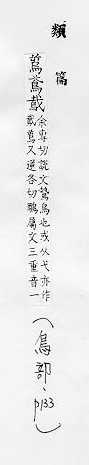 類篇
鳶
余專切說文鷙鳥也或从弋亦作
鳶又逆各切鶚屬文三重音一
(鳥部、p133)